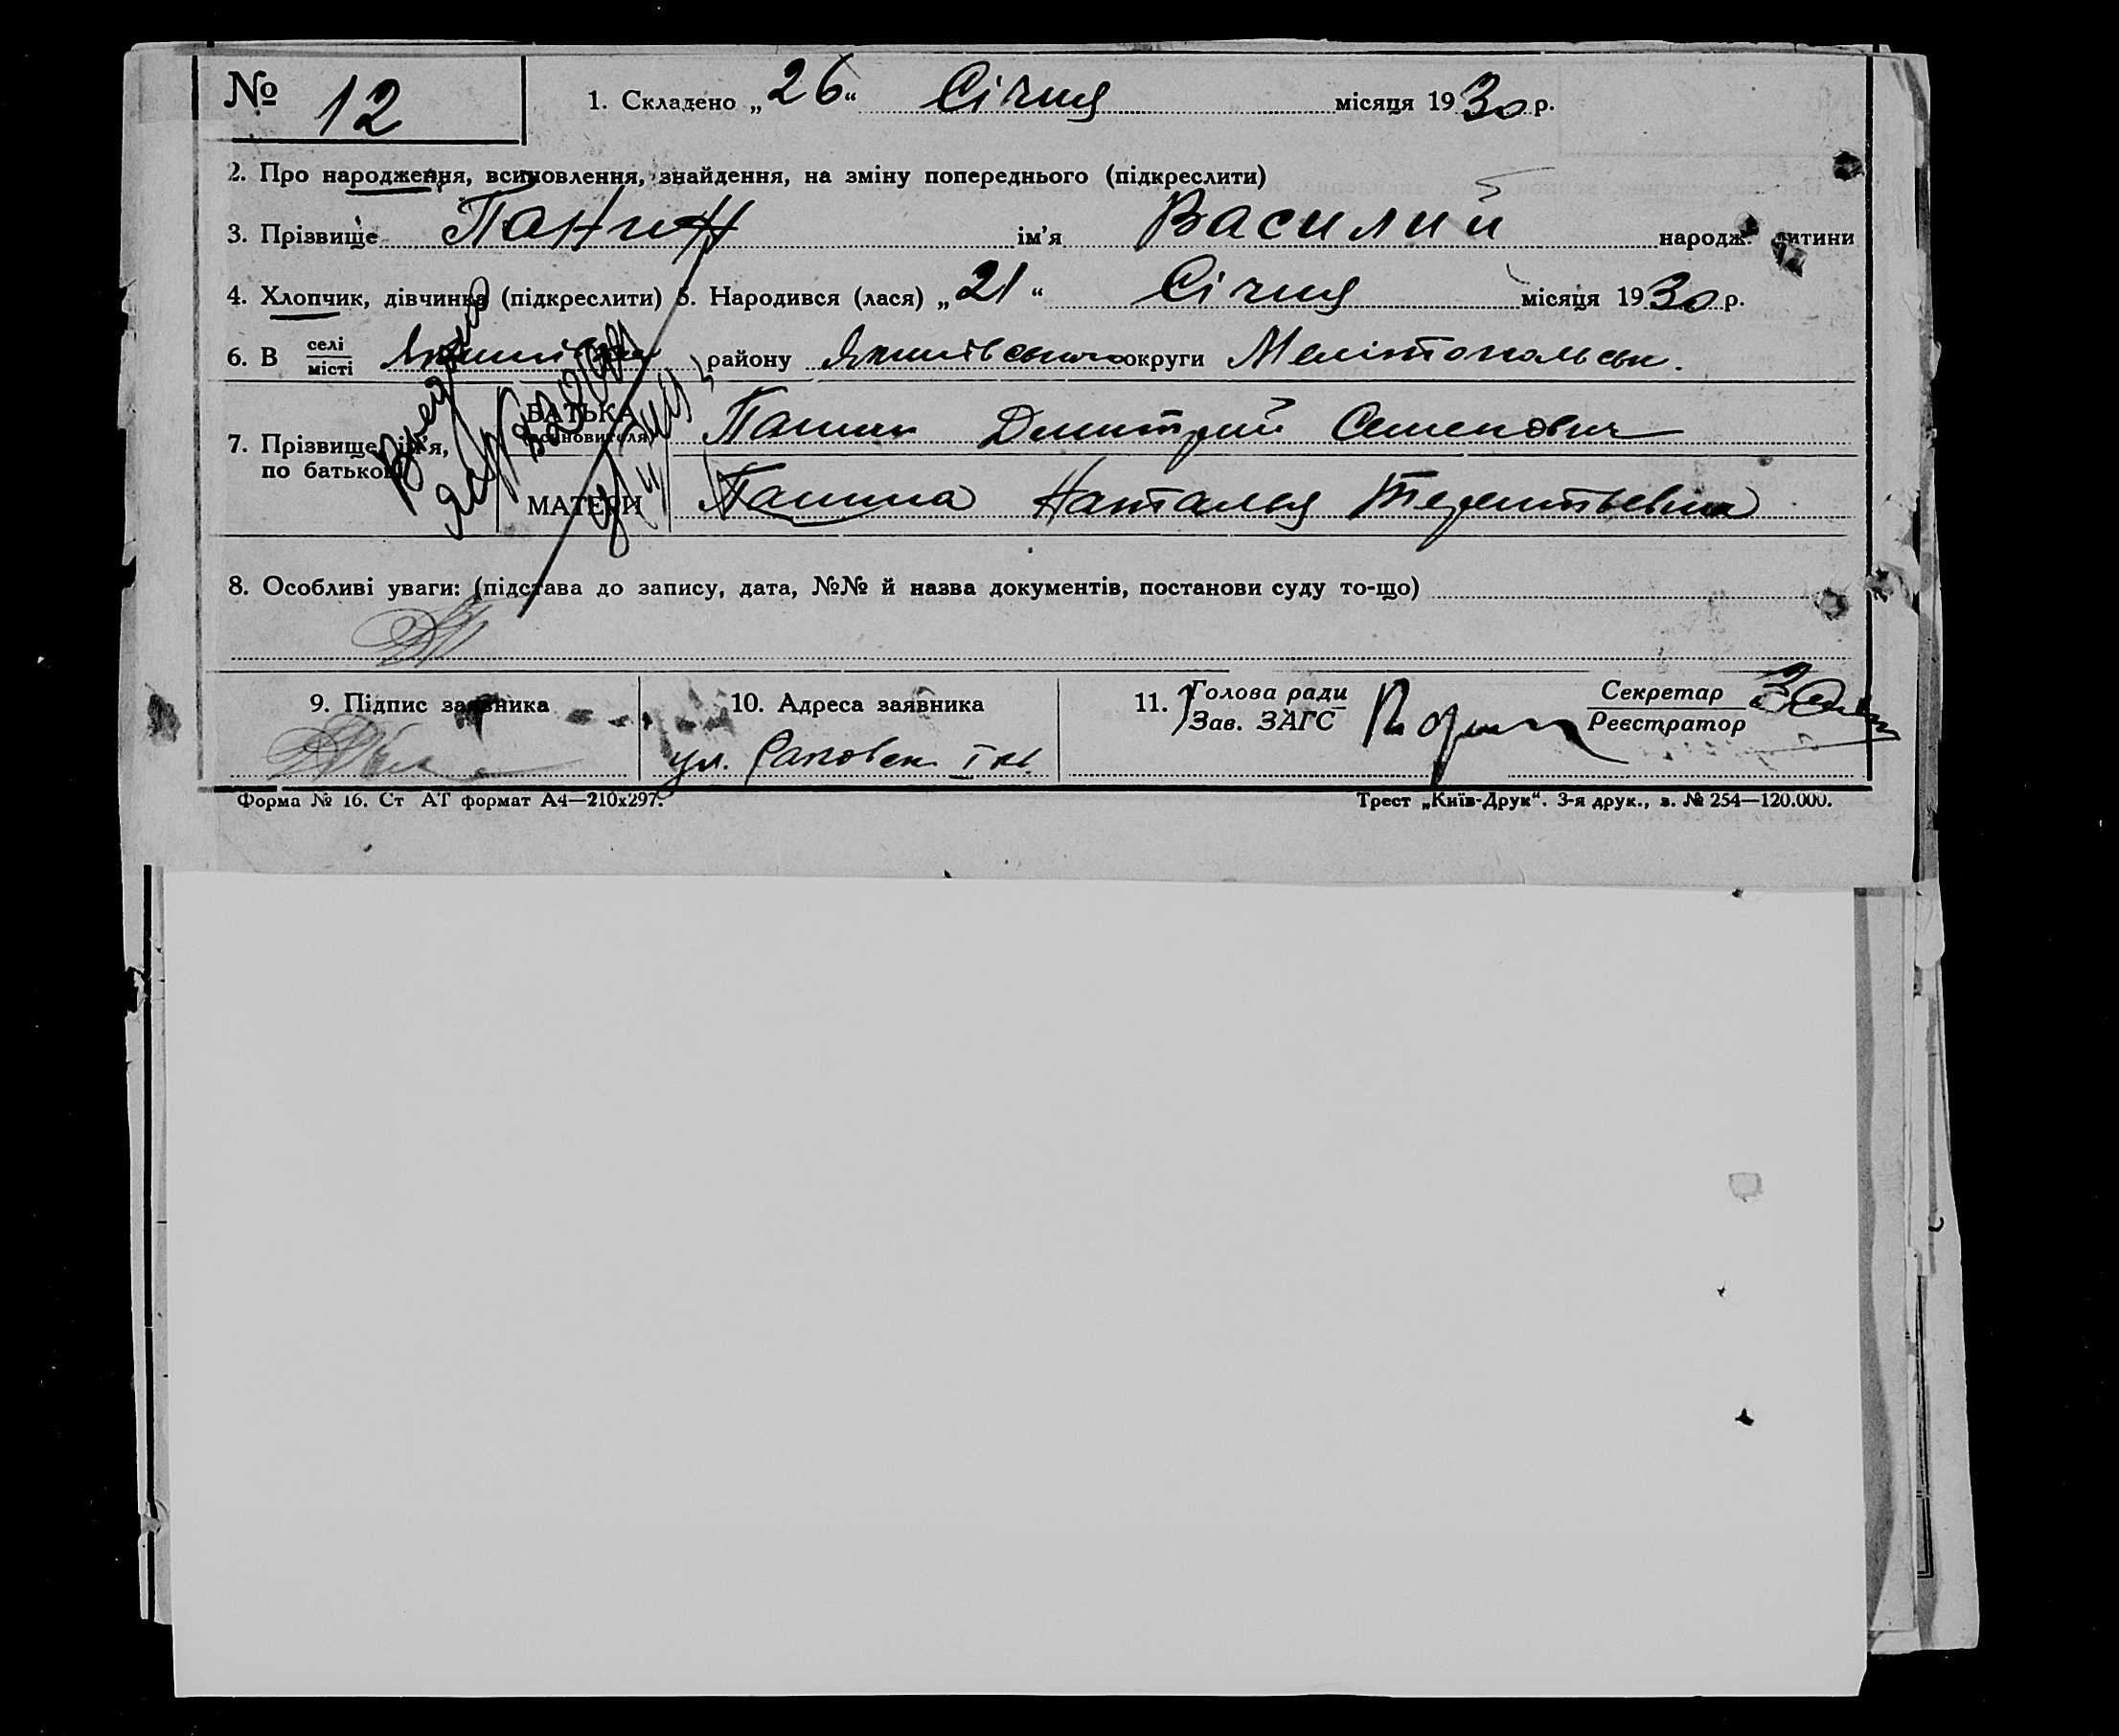 № 12
1. Складено „26“ Січня місяця 1930 р.
2. Про народження, всиновлення, знайдення, на зміну попереднього (підкреслити)
3. Прізвище Панин ім’я Василий народж. дитини
4. Хлопчик, дівчинка (підкреслити) 5. Народився (лася) „21“ Січня місяця 1930 р.
6. В селі/місті Якимівка району Якимівського округи Мелітопольськ.
7. Прізвище, ім’я, по батькові
БАТЬКА (всиновителя) Панин Дмитрий Семенович
МАТЕРИ Панина Наталья Терентьевна
8. Особливі уваги: (підстава до запису, дата, №№ й назва документів, постанови суду то-що)
9. Підпис заявника
10. Адреса заявника
ул. Раковск. I кв.
11. Голова ради / Зав. ЗАГС
Секретар / Реєстратор
Форма № 16. Ст АТ формат А4—210х297.
Трест „Київ-Друк“. 3-я друк., з. № 254—120.000.